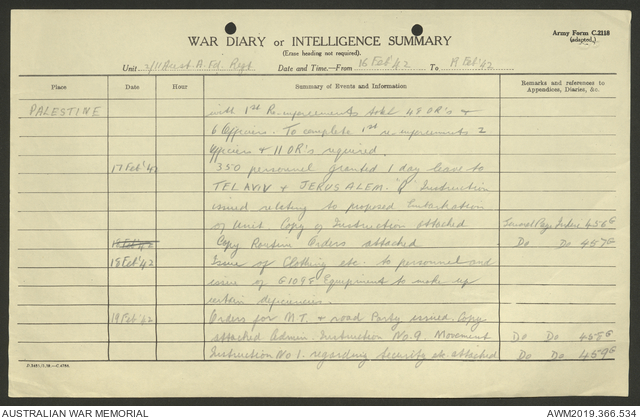 WAR DIARY or INTELLIGENCE SUMMARY
Army Form C.2118
(adapted.)
(Erase heading not required).
Unit 2/11 Aust. A. Fd. Regt Date and Time.—From 16 Feb '42 To 19 Feb '42
Place Date Hour Summary of Events and Information Remarks and references to Appendices, Diaries, &c.
PALESTINE with 1st Reinforcements total 48 OR's &
6 Officers. To complete 1st reinforcements 2
Officers & 11 OR's required.
17 Feb '42 350 personnel granted 1 day leave to
TEL AVIV & JERUSALEM. Instruction
issued relating to proposed Embarkation
of Unit Copy of Instruction attached
18 Feb '42 Copy Routine Orders attached Do Do
18 Feb '42 Issue of Clothing etc. to personnel and
issue of G1098 Equipment to make up
certain deficiencies.
19 Feb '42 Orders for M.T. & road Party issued. Copy
attached Admin. Instruction No. 9. Movement Do Do
Instruction No 1. regarding Security etc attached Do Do
AUSTRALIAN WAR MEMORIAL AWM2019.366.534